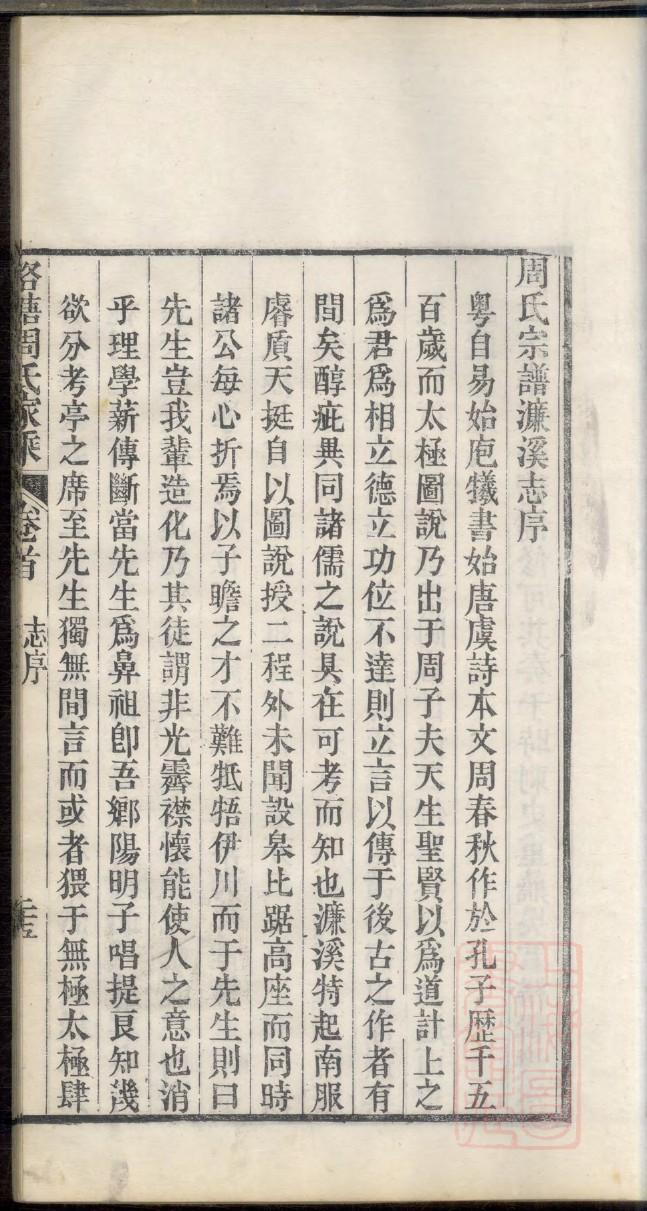 周氏宗譜濂溪志序
粤自易始庖犧書始唐虞詩本文周春秋作於孔子歷千五
百歲而太極圖說乃出于周子夫天生聖賢以爲道計上之
爲君爲相立德立功位不達則立言以傳于後古之作者有
間矣醇疵異同諸儒之說具在可考而知也濂溪特起南服
睿質天挺自以圖說授二程外未聞設皋比踞高座而同時
諸公每心折焉以子瞻之才不難牴牾伊川而于先生則曰
先生豈我輩造化乃其徒謂非光霽襟懷能使人之意也消
乎理學薪傳斷當先生爲鼻祖卽吾鄉陽明子唱提良知譏
欲分考亭之席至先生獨無間言而或者猥于無極太極肆
塘周氏家乘 卷首 志序